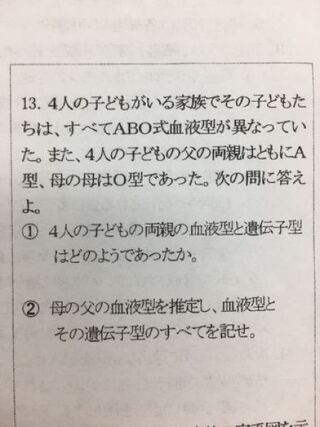 13. 4人の子どもがいる家族でその子どもた
ちは、すべてABO式血液型が異なってい
た。また、4人の子どもの父の両親はともにA
型、母の母はO型であった。次の問に答え
よ。
① 4人の子どもの両親の血液型と遺伝子型
はどのようであったか。
② 母の父の血液型を推定し、血液型と
その遺伝子型のすべてを記せ。